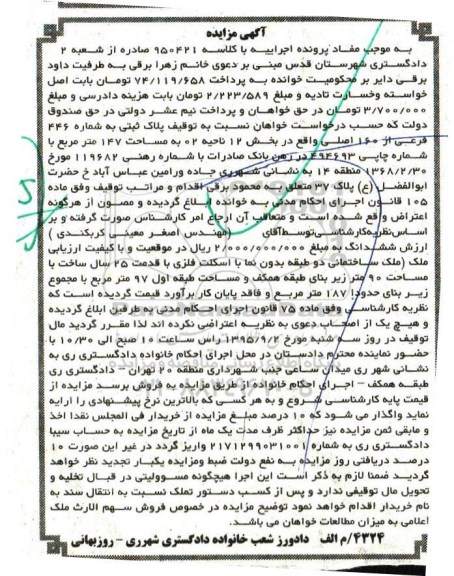 آگهی مزایده
به موجب مفاد پرونده اجراییه با کلاسه ۹۵۰۴۲۱ صادره از شعبه ۲
دادگستری شهرستان قدس مبنی بر دعوی خانم زهرا برقی به طرفیت داود
برقی دایر بر محکومیت خوانده به پرداخت ۷۴/۱۱۹/۶۵۸ تومان بابت اصل
خواسته وخسارت تادیه و مبلغ ۲/۲۲۳/۵۸۹ تومان بابت هزینه دادرسی و مبلغ
۳/۷۰۰/۰۰۰ تومان در حق خواهان و پرداخت نیم عشر دولتی در حق صندوق
دولت که حسب درخواست خواهان نسبت به توقیف پلاک ثبتی به شماره ۴۴۶
فرعی از ۱۶۰ اصلی واقع در بخش ۱۲ ناحیه ۰۲ به مساحت ۱۴۷ متر مربع با
شماره چاپی ۴۹۴۶۹۳ در رهن بانک صادرات با شماره رهنی ۱۱۹۶۸۲ مورخ
۱۳۶۸/۲/۳۰ منطقه ۱۴ به نشانی شهرری جاده ورامین عباس آباد خ حضرت
ابوالفضل (ع) پلاک ۳۷ متعلق به محمود برقی اقدام و مراتب توقیف وفق ماده
۱۰۵ قانون اجرای احکام مدنی به خوانده ابلاغ گردیده و مصون از هرگونه
اعتراض واقع شده است و متعاقب آن ارجاع امر کارشناس صورت گرفته و بر
اساس نظریه کارشناسی توسط آقای (مهندس اصغر معینی کربکندی)
ارزش ششدانگ آن مبلغ ۲/۰۰۰/۰۰۰/۰۰۰ ریال در موقعیت و با کیفیت ارزیابی
ملک (ملک ساختمانی دو طبقه بدون نما با اسکلت فلزی با قدمت ۲۵ سال ساخت با
مساحت ۹۰ متر زیر بنای طبقه همکف و مساحت طبقه اول ۹۷ متر مربع با مجموع
زیر بنای حدودا ۱۸۷ متر مربع و فاقد پایان کار برآورد قیمت گردیده است که
نظریه کارشناسی وفق ماده ۷۵ قانون اجرای احکام مدنی به طرفین ابلاغ گردیده
و هیچ یک از اصحاب دعوی به نظریه اعتراضی نکرده اند لذا مقرر گردید مال
توقیف در روز سه شنبه مورخ ۱۳۹۵/۹/۲ راس ساعت ۱۰ صبح الی ۱۰/۳۰ با
حضور نماینده محترم دادستان در محل اجرای احکام خانواده دادگستری ری به
نشانی شهر ری میدان ساعی جنب شهرداری منطقه ۲۰ تهران - دادگستری ری
طبقه همکف - اجرای احکام خانواده از طریق مزایده به فروش برسد مزایده از
قیمت پایه کارشناسی شروع و به هر کسی که بالاترین نرخ پیشنهادی را ارایه
نماید واگذار می شود که ۱۰ درصد مبلغ مزایده از خریدار فی المجلس نقدا اخذ
و مابقی ثمن مزایده نیز حداکثر ظرف مدت یک ماه از تاریخ مزایده به حساب سیبا
دادگستری ری به شماره ۲۱۷۱۲۹۹۰۳۱۰۰۱ واریز گردد در غیر این صورت ۱۰
درصد دریافتی روز مزایده به نفع دولت ضبط ومزایده یکبار تجدید نظر خواهد
گردید ضمنا لازم به ذکر است این اجرا هیچگونه مسوولیتی در قبال تخلیه و
تحویل مال توقیفی ندارد و پس از کسب دستور تملک نسبت به انتقال سند به
نام خریدار اقدام خواهد نمود توضیح مزایده در خصوص فروش سهم الارث ملک
اعلامی به میزان مطالعات خواهان می باشد.
۴۳۲۴/م الف دادورز شعب خانواده دادگستری شهرری - روزبهانی